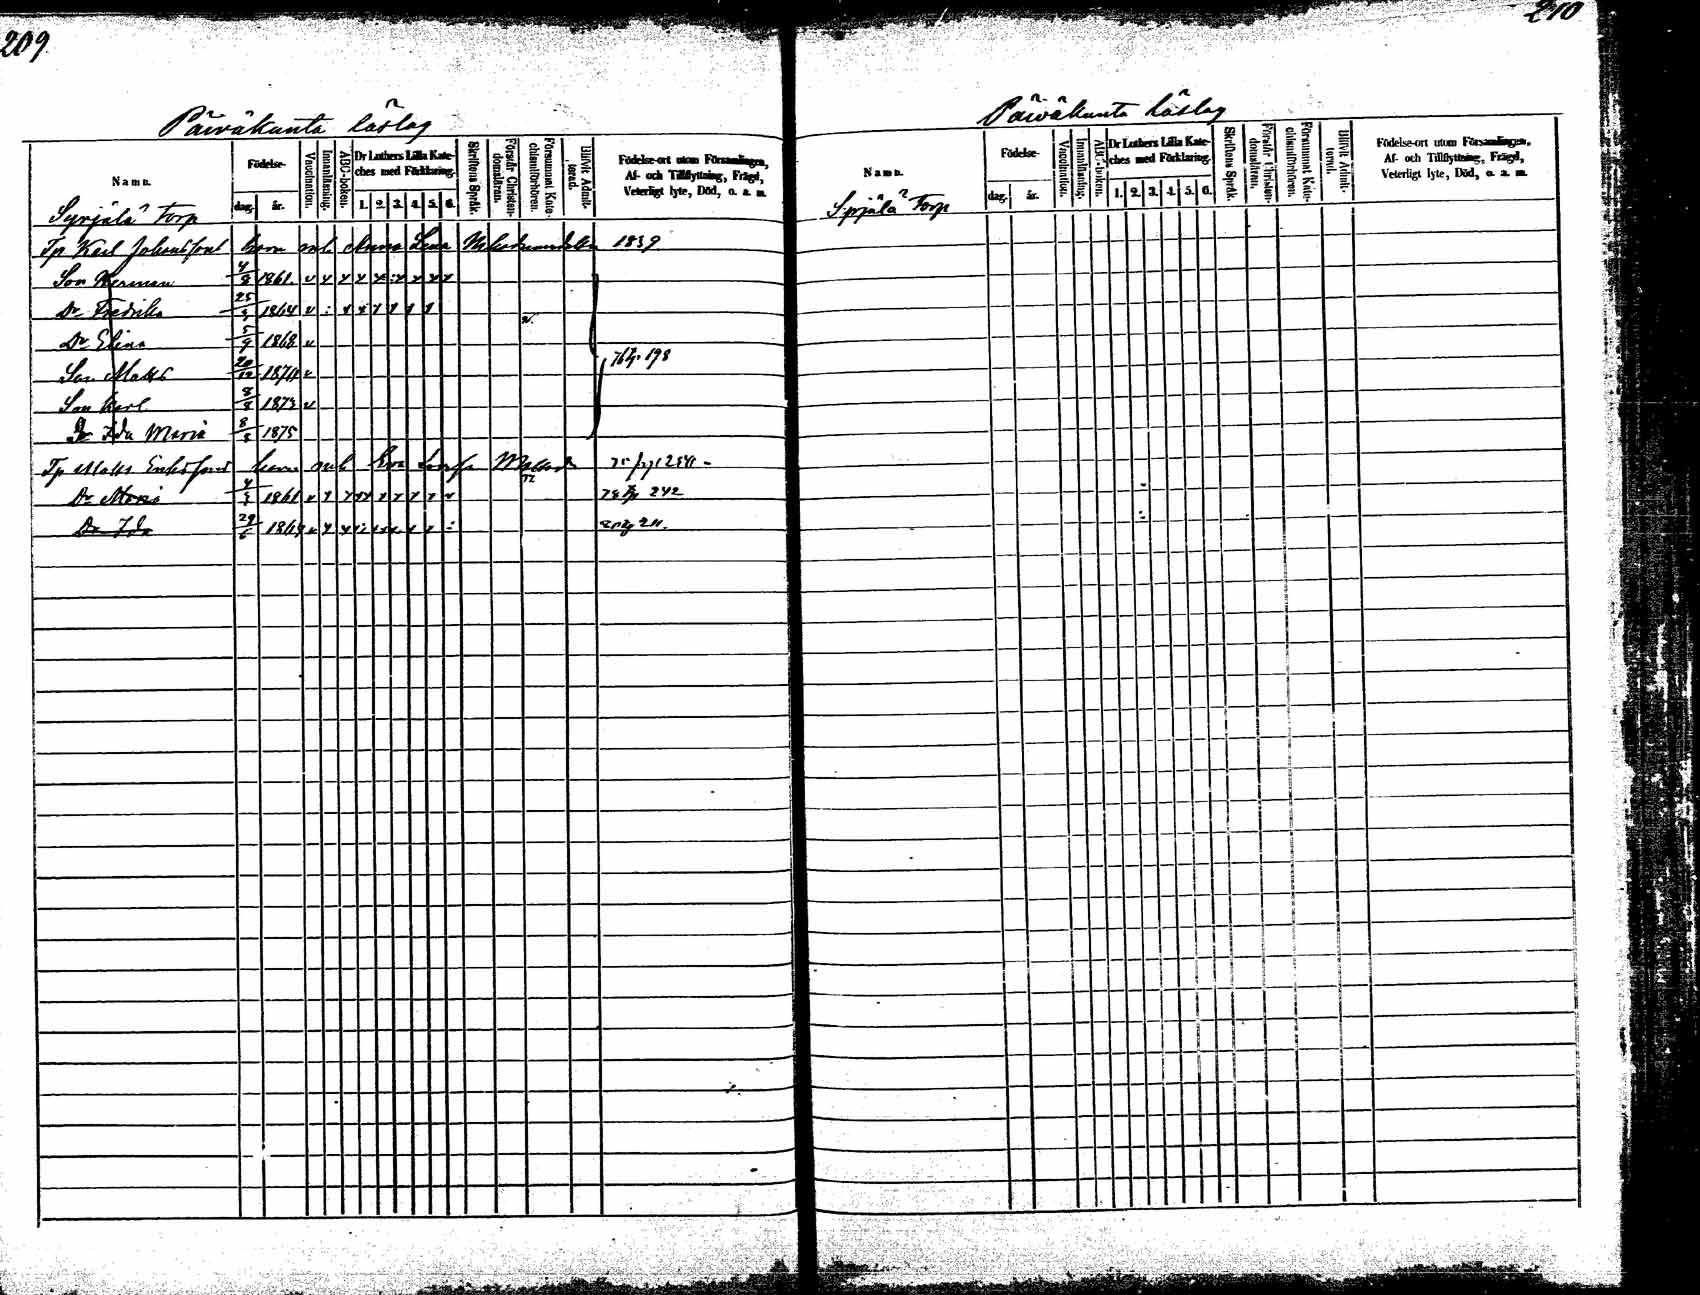 209
Päiväkunta läslag
Namn.
Födelse-
dag.
år.
Vaccination.
Innanläsning.
ABC-boken.
Dr Luthers Lilla Kate-
ches med Förklaring.
1. 2. 3. 4. 5. 6.
Skriftens Språk.
Förstår Christen-
domsläran.
Försummat Kate-
chismiförhören.
Blifvit Admit-
terad.
Födelse-ort utom Församlingen,
Af- och Tillflyttning, Frägd,
Veterligt lyte, Död, o. a. m.
Syrjälä Torp
Tp Karl Johansson barn och Anna Lena 1839
Son Herman 4/8 1861
Dr Fredrika 25/ 1864
Dr Elina 5/9 1868
Son Matts 20/12 1871
198
Son Karl 8/8 1873
Dr Ida Maria 8/8 1875
Tp Matts barn och Eva
Dr Maria 4/ 1861 242
Dr Ida 29/6 1869 211.
210
Päiväkunta läslag
Namn.
Födelse-
dag.
år.
Vaccination.
Innanläsning.
ABC-boken.
Dr Luthers Lilla Kate-
ches med Förklaring.
1. 2. 3. 4. 5. 6.
Skriftens Språk.
Förstår Christen-
domsläran.
Försummat Kate-
chismiförhören.
Blifvit Admit-
terad.
Födelse-ort utom Församlingen,
Af- och Tillflyttning, Frägd,
Veterligt lyte, Död, o. a. m.
Syrjälä Torp